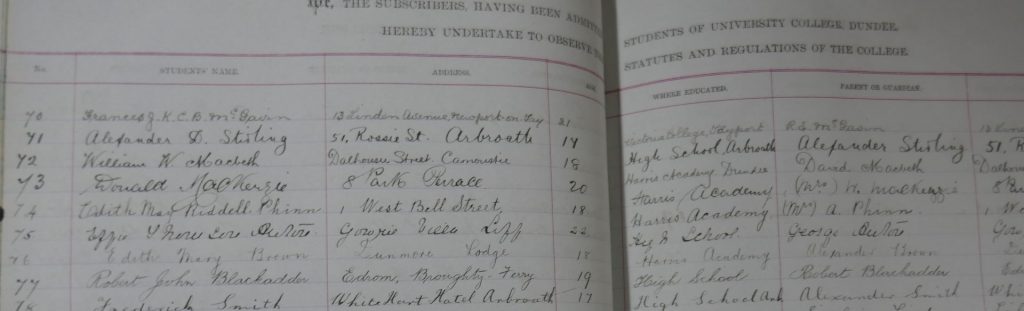 THE SUBSCRIBERS, HAVING BEEN
HEREBY UNDERTAKE TO OBSERVE
STUDENTS OF UNIVERSITY COLLEGE, DUNDEE.
STATUTES AND REGULATIONS OF THE COLLEGE.
No. STUDENTS' NAME. ADDRESS. AGE. WHERE EDUCATED. PARENT OR GUARDIAN.
70 Frances J. K. C. B. McGavin 13 Linden Avenue, Newport-on-Tay 21 Victoria College, R.S. McGavin
71 Alexander D. Stirling 51, Rossie St. Arbroath 17 High School, Arbroath Alexander Stirling 51,
72 William W. Macbeth Dalhousie Street, Carnoustie 18 Harris Academy Dundee David Macbeth
73 Donald MacKenzie 8 Park Terrace 20 Harris Academy (Mrs) MacKenzie 8
74 Edith May Riddell Phinn 1 West Bell Street 18 Harris Academy (Mrs) A. Phinn. 1
75 Effie Gowrie Villa Liff 22 High School. George
76 Edith Mary Brown Dunmore Lodge 18 Harris Academy Alexander Brown
77 Robert John Blackadder Edrom, Broughty-Ferry 19 High School Robert Blackadder
78 Frederick Smith White Hart Hotel Arbroath 17 High School Arb Alexander Smith